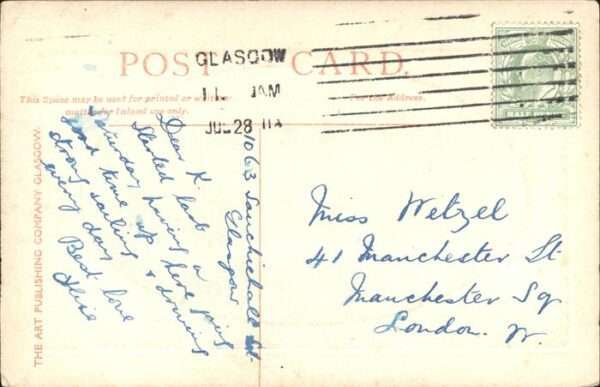 POST CARD.
GLASGOW
11. JAM
JUL 28 11A
This Space may be used for printed or written
matter for Inland use only.
For the Address.
THE ART PUBLISHING COMPANY GLASGOW.
1063 Sauchiehall St.
Glasgow
Dear K.
Started last
Saturday, having a
good time up here going
strong sailing & driving
every day
Best love
Elsie
Miss Wetzel
41 Manchester St
Manchester Sq
London. W.
HALF